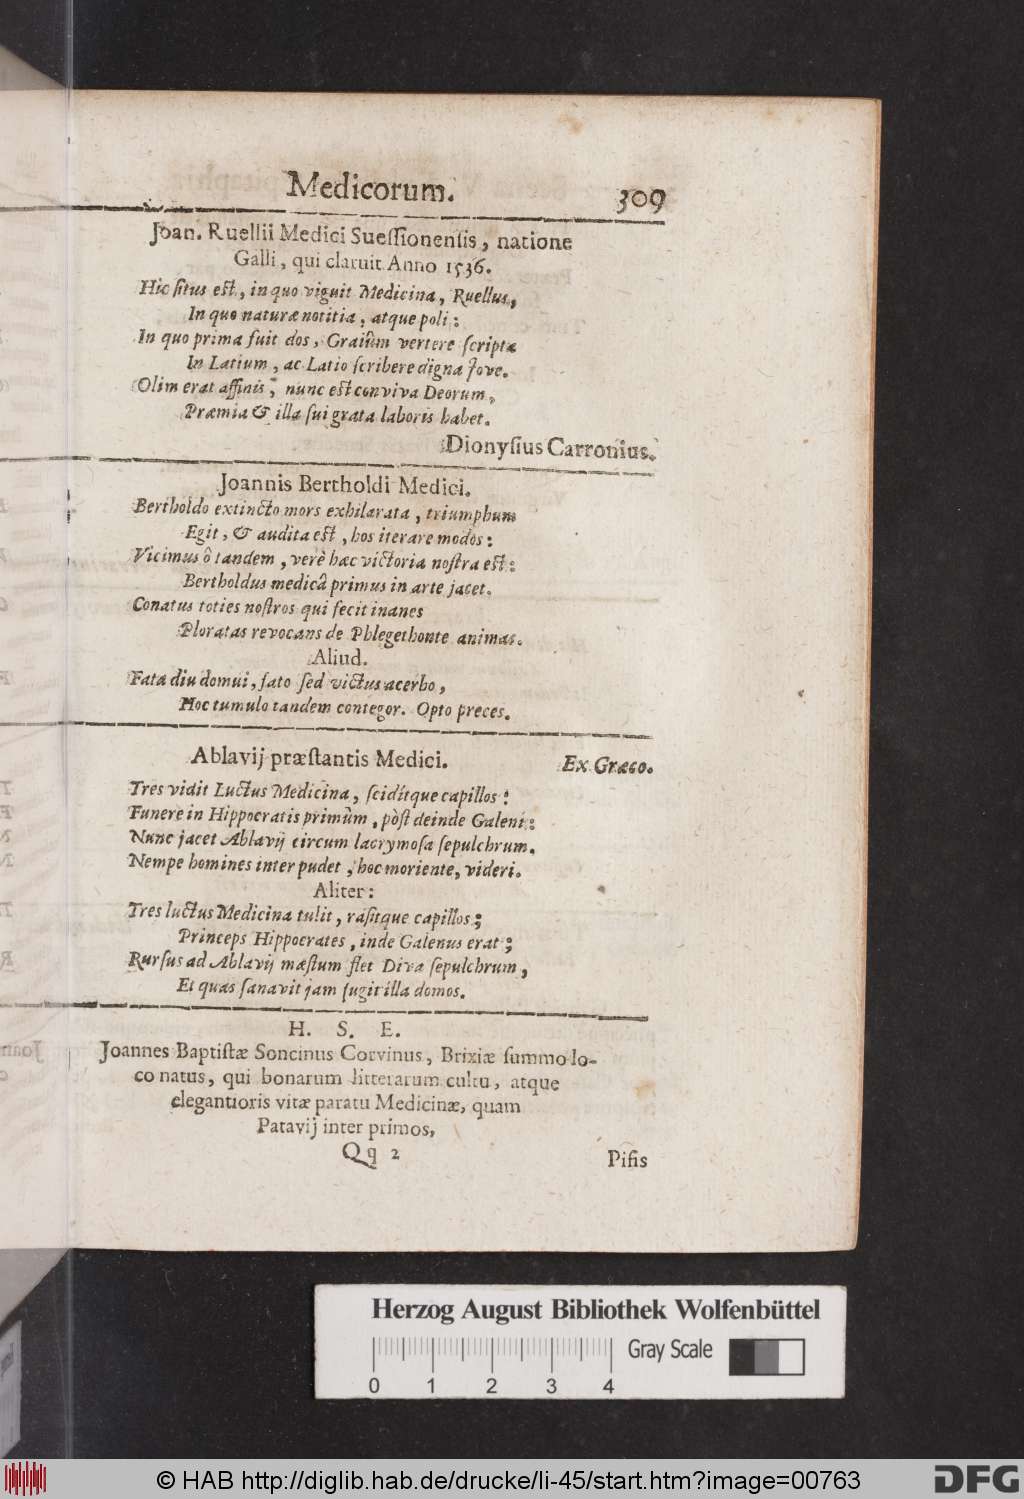 Medicorum. 309
Joan. Ruellii Medici Suessionensis, natione
Galli, qui claruit Anno 1536.
Hic situs est, in quo viguit Medicina, Ruellus,
In quo naturæ notitia, atque poli:
In quo prima fuit dos, Graiûm vertere scripta
In Latium, ac Latio scribere digna Jove.
Olim erat affinis, nunc est conviva Deorum,
Præmia & illa sui grata laboris habet.
Dionysius Carronius.
Joannis Bertholdi Medici.
Bertholdo extincto mors exhilarata, triumphum
Egit, & audita est, hos iterare modos:
Vicimus ô tandem, verè hæc victoria nostra est:
Bertholdus medicâ primus in arte jacet.
Conatus toties nostros qui fecit inanes
Ploratas revocans de Phlegethonte animas.
Aliud.
Fata diu domui, fato sed victus acerbo,
Hoc tumulo tandem contegor. Opto preces.
Ablavij præstantis Medici. Ex Græco.
Tres vidit Luctus Medicina, sciditque capillos:
Funere in Hippocratis primùm, pòst deinde Galeni:
Nunc jacet Ablavij circum lacrymosa sepulchrum.
Nempe homines inter pudet, hoc moriente, videri.
Aliter:
Tres luctus Medicina tulit, rasitque capillos;
Princeps Hippocrates, inde Galenus erat;
Rursus ad Ablavij mæstum flet Diva sepulchrum,
Et quas sanavit jam fugit illa domos.
H. S. E.
Joannes Baptistæ Soncinus Corvinus, Brixiæ summo lo-
co natus, qui bonarum litterarum cultu, atque
elegantioris vitæ paratu Medicinæ, quam
Patavij inter primos,
Qq 2 Pisis
Herzog August Bibliothek Wolfenbüttel
Gray Scale
0 1 2 3 4
© HAB http://diglib.hab.de/drucke/li-45/start.htm?image=00763
DFG